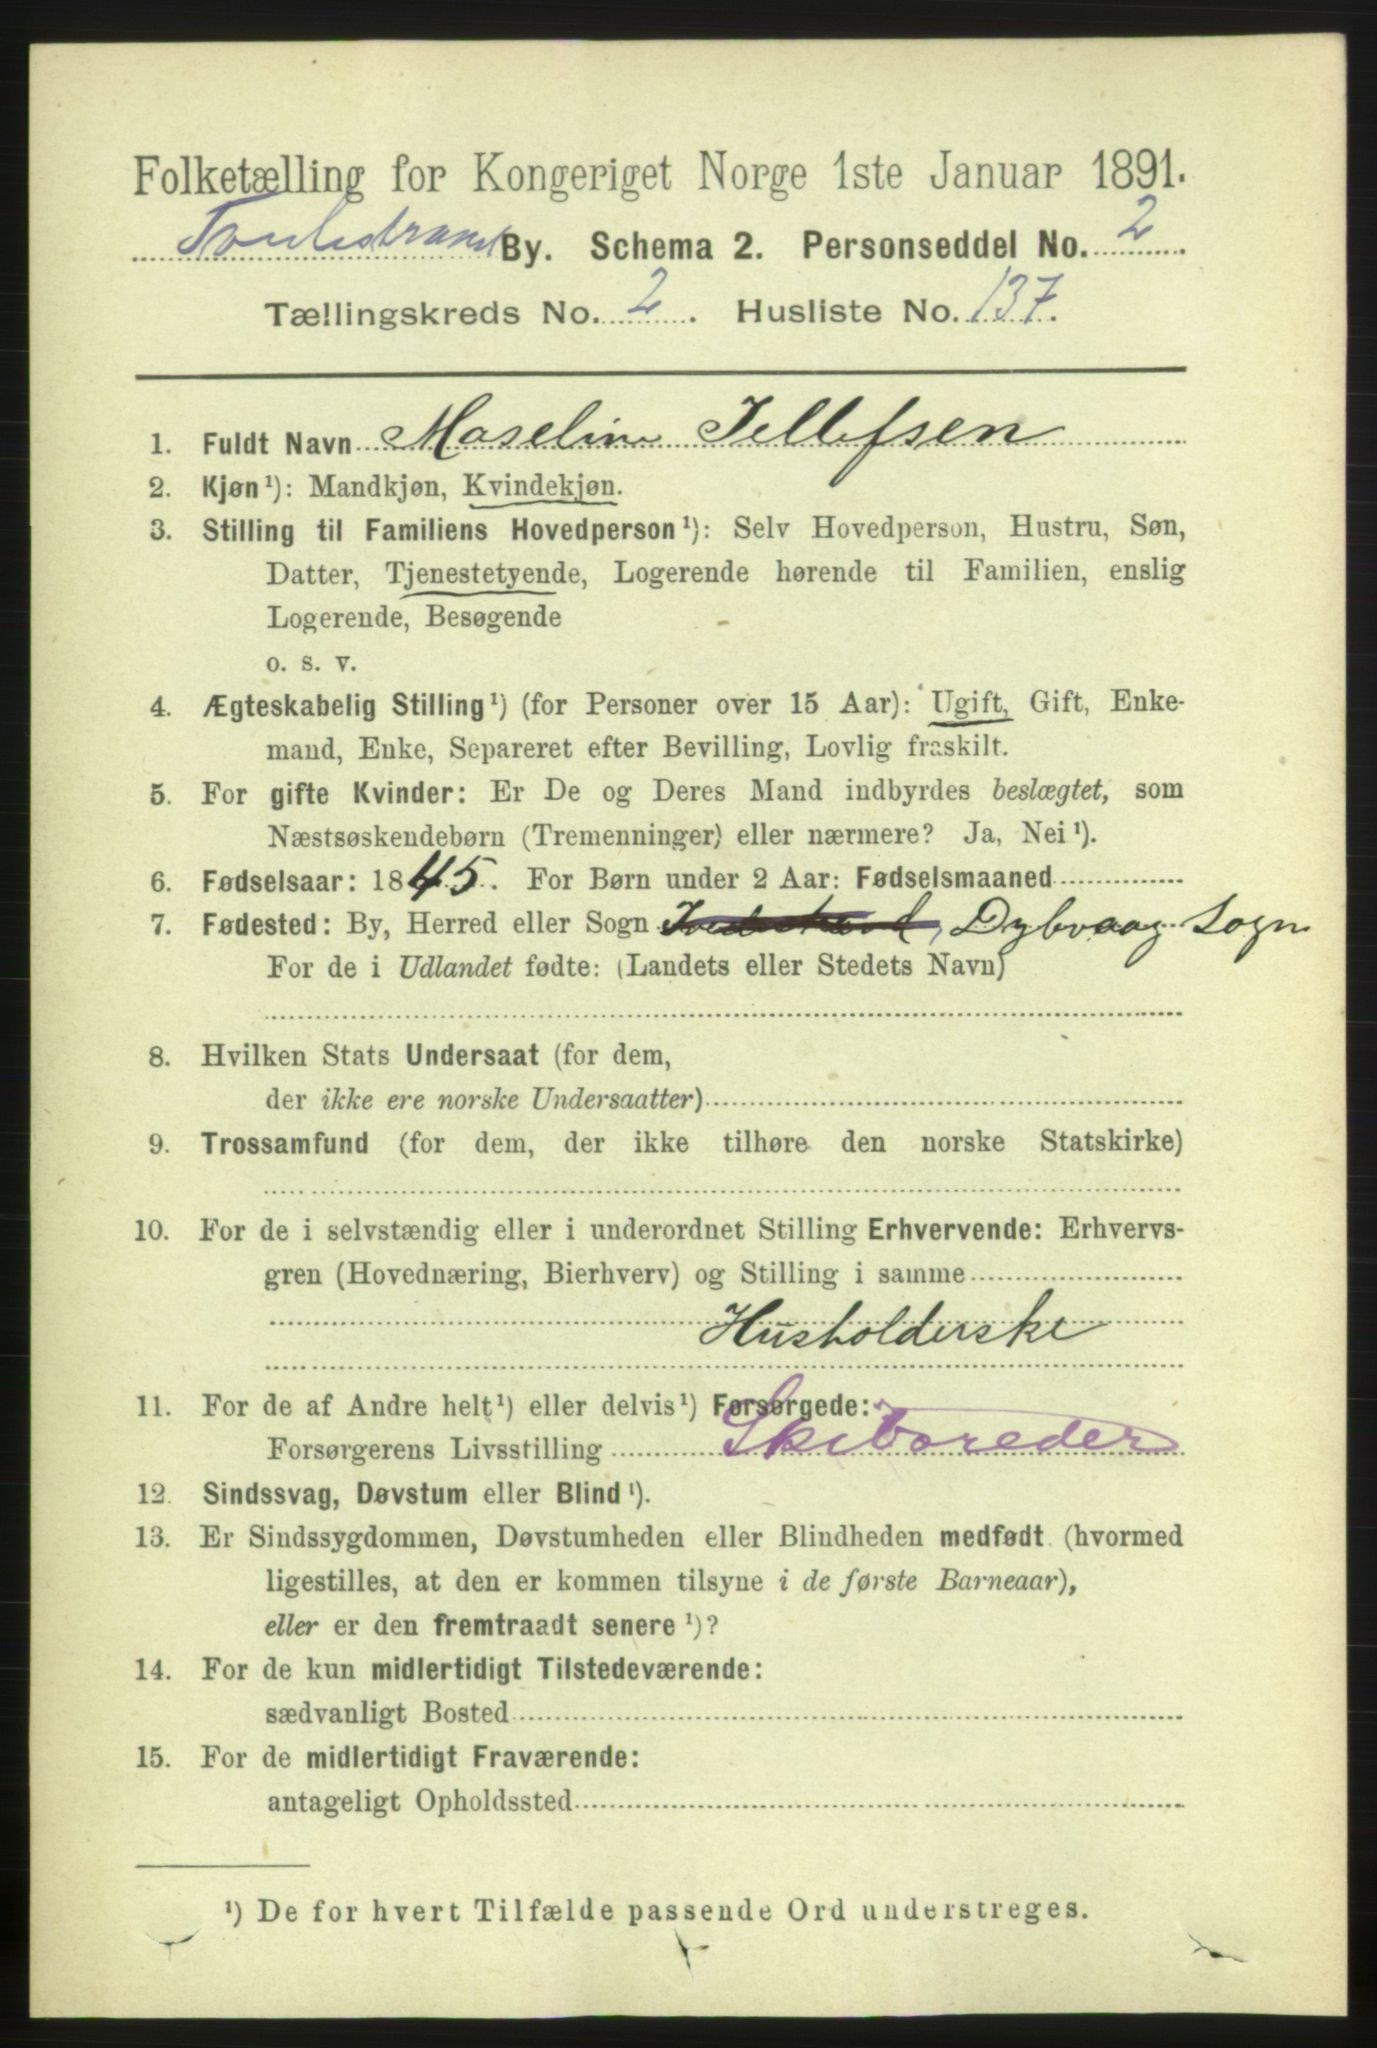 Folketælling for Kongeriget Norge 1ste Januar 1891.
Tvedestrand By. Schema 2. Personseddel No. 2
Tællingskreds No. 2. Husliste No. 137.
1. Fuldt Navn Maseline Tellefsen
2. Kjøn¹): Mandkjøn, Kvindekjøn.
3. Stilling til Familiens Hovedperson¹): Selv Hovedperson, Hustru, Søn,
Datter, Tjenestetyende, Logerende hørende til Familien, enslig
Logerende, Besøgende
o. s. v.
4. Ægteskabelig Stilling¹) (for Personer over 15 Aar): Ugift, Gift, Enke-
mand, Enke, Separeret efter Bevilling, Lovlig fraskilt.
5. For gifte Kvinder: Er De og Deres Mand indbyrdes beslægtet, som
Næstsøskendebørn (Tremenninger) eller nærmere? Ja, Nei¹).
6. Fødselsaar: 1845. For Børn under 2 Aar: Fødselsmaaned
7. Fødested: By, Herred eller Sogn Dybvaag Sogn
For de i Udlandet fødte: (Landets eller Stedets Navn)
8. Hvilken Stats Undersaat (for dem,
der ikke ere norske Undersaatter)
9. Trossamfund (for dem, der ikke tilhøre den norske Statskirke)
10. For de i selvstændig eller i underordnet Stilling Erhvervende: Erhvervs-
gren (Hovednæring, Bierhverv) og Stilling i samme
Husholderske
11. For de af Andre helt¹) eller delvis¹) Forsørgede:
Forsørgerens Livsstilling Skibsreder
12. Sindssvag, Døvstum eller Blind¹).
13. Er Sindssygdommen, Døvstumheden eller Blindheden medfødt (hvormed
ligestilles, at den er kommen tilsyne i de første Barneaar),
eller er den fremtraadt senere¹)?
14. For de kun midlertidigt Tilstedeværende:
sædvanligt Bosted
15. For de midlertidigt Fraværende:
antageligt Opholdssted
¹) De for hvert Tilfælde passende Ord understreges.